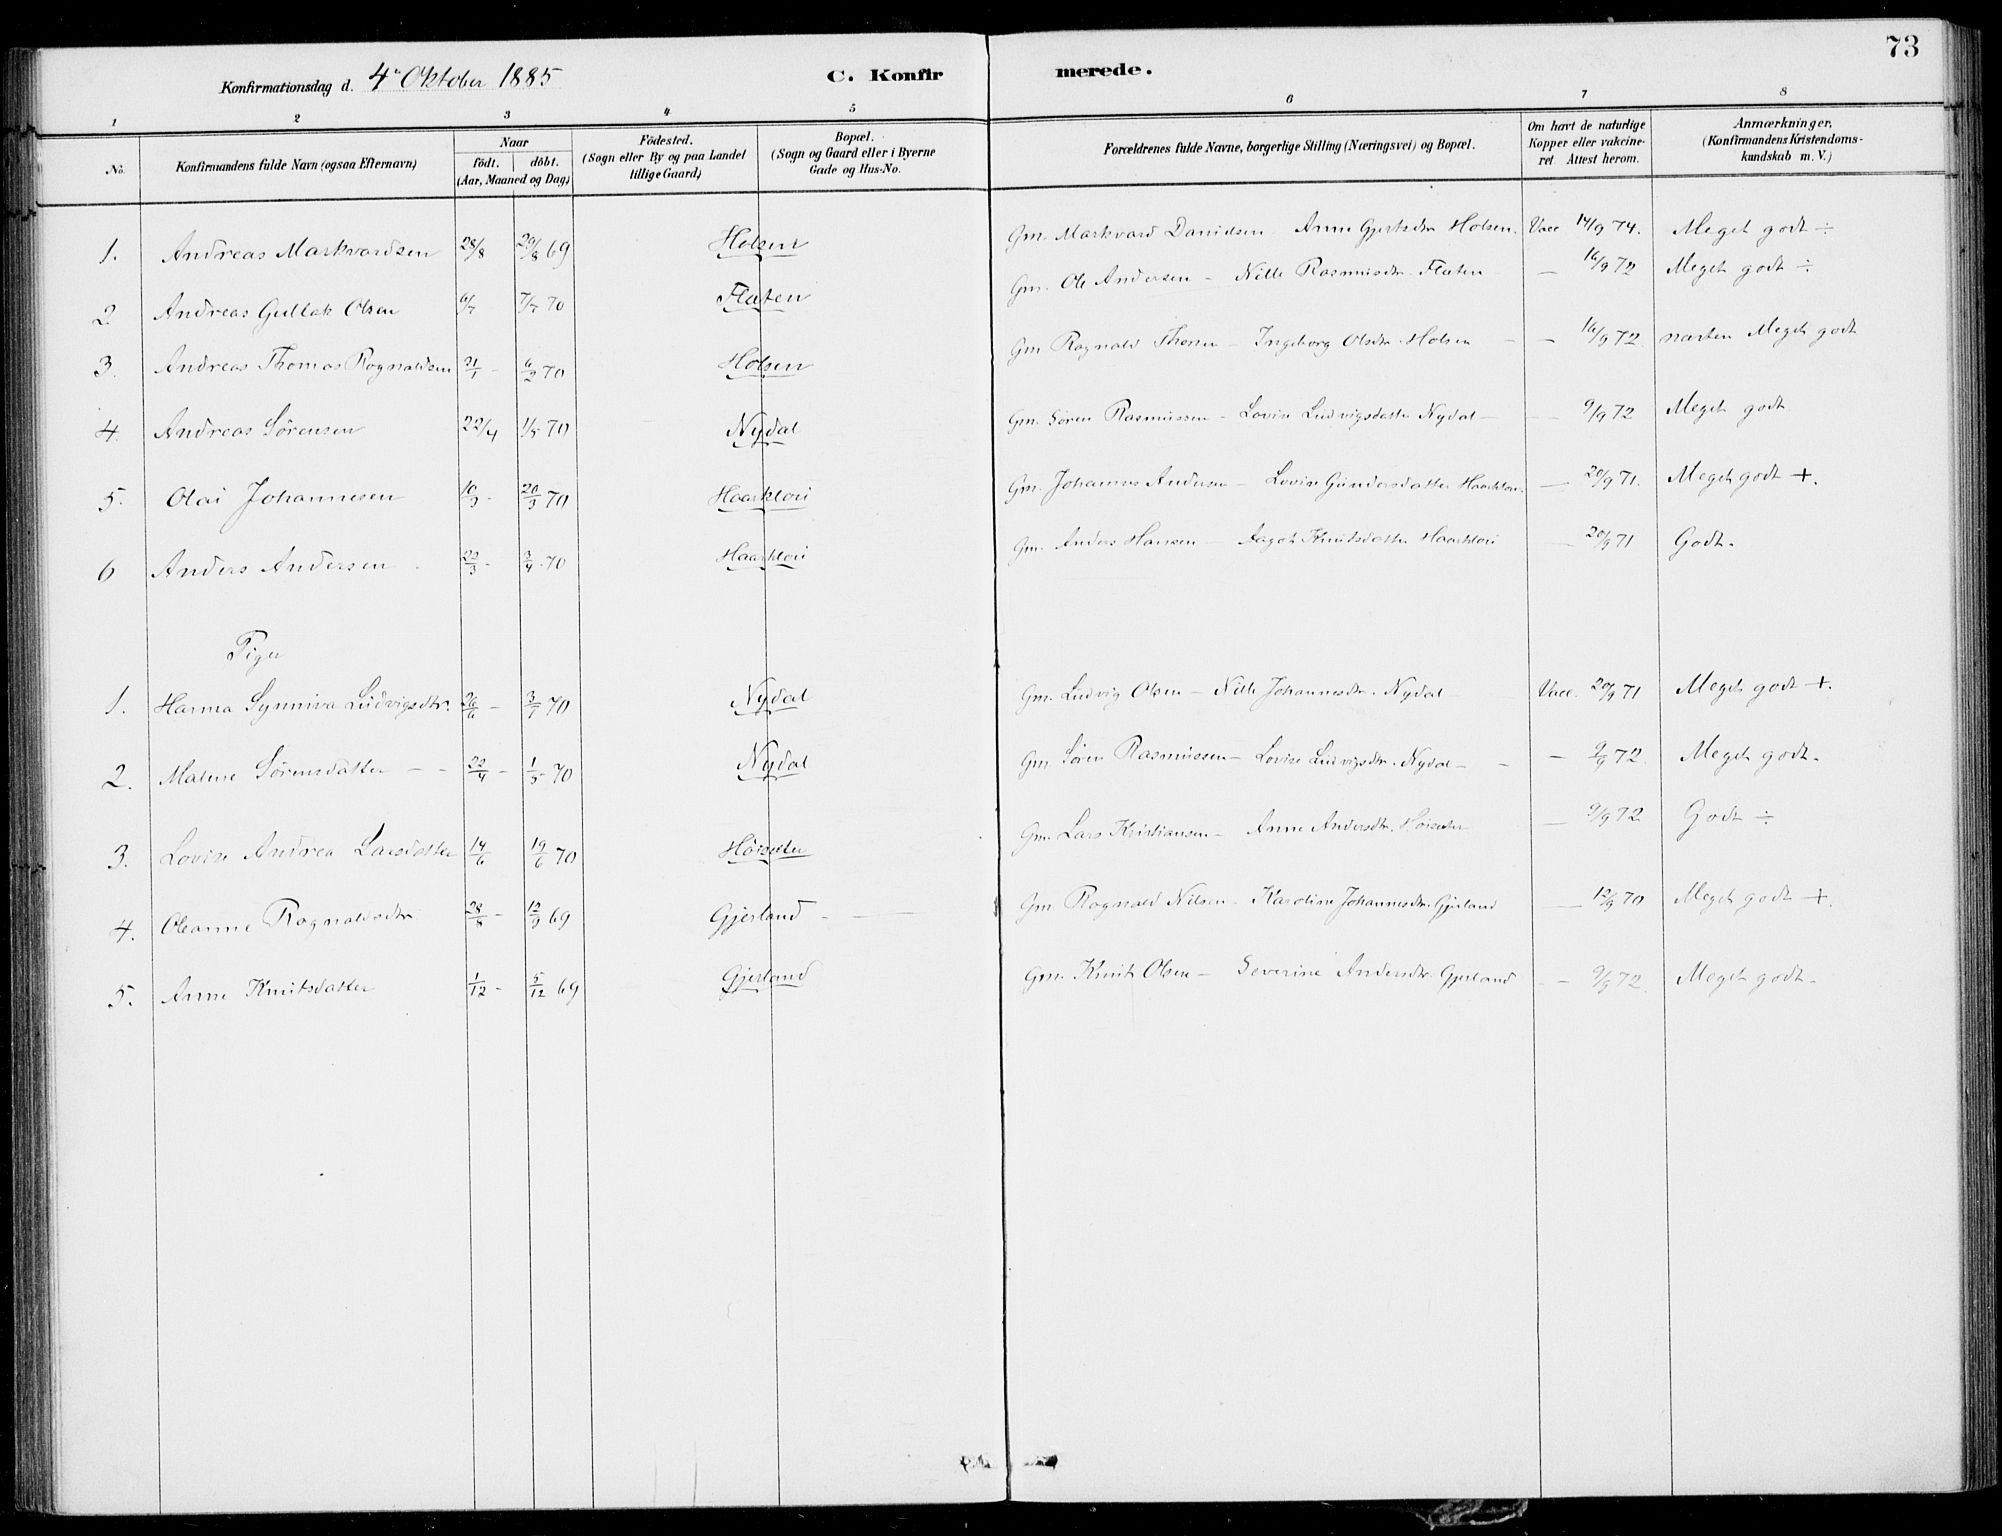 73
Konfirmationsdag d. 4de Oktober 1885 C. Konfirmerede.
1 2 3 4 5 6 7 8
No. Konfirmandens fulde Navn (ogsaa Efternavn) Naar födt. döbt. (Aar, Maaned og Dag) Födested. (Sogn eller By og paa Landet tillige Gaard) Bopæl. (Sogn og Gaard eller i Byerne Gade og Hus-No. Forældrenes fulde Navne, borgerlige Stilling (Næringsvei) og Bopæl. Om havt de naturlige Kopper eller vakcineret. Attest herom. Anmærkninger, (Konfirmandens Kristendomskundskab m. V.)
1. Andreas Markvardsen 28/8 29/8 69 Holsen Gm. Markvard Danielsen Anne Gjertsdtr Holsen. Vacc 14/9 74. Meget godt ÷
2. Andreas Gullak Olsen 6/7 7/7 70 Flaten Gm. Ole Andersen - Nille Rasmusdtr. Flaten - 16/9 72 Meget godt ÷
3. Andreas Thomas Rognaldsen 21/1 - 6/2 70 Holsen Gm Rognald Thomn - Ingeborg Olsdtr. Holsen - - 16/9 72. næsten Meget godt
4. Andreas Sørensen 22/4 1/5 70 Nydal Gm. Søren Rasmussen - Lovise Ludvigsdatter Nydal - - 9/9 72 Meget godt
5. Olai Johannesen 10/3 - 20/3 70 Haarklori Gm. Johannes Andersen - Lovise Gundersdatter Haarklori. - 20/9 71. Meget godt +.
6 Anders Andersen 22/3 - 3/4 70 Haarklori Gm. Anders Hansen - Aagot Knutsdatter Haarklori - 20/9 71 Godt.
Piger
1. Hanna Synniva Ludvigsdtr. 26/6 - 3/7 70 Nydal Gm. Ludvig Olsen - Nille Johannesdtr. Nydal - Vacc. 20/9 71 Meget godt +.
2. Malene Sørensdatter - - 22/4 - 1/5 70 Nydal Gm. Søren Rasmussen - Lovise Ludvigsdtr. Nydal - - - 9/9 72. Meget godt.
3. Lovise Andrea Larsdatter 14/6 19/6 70 Höiseter Gm. Lars Kristiansen - Anne Andersdtr. Höiseter - 9/9 72 Godt ÷
4. Oleanne Rognaldsdtr 28/8 - 12/9 69 Gjerland - - Gm. Rognald Nilsen - Karoline Johannesdtr. Gjerland - 12/9 70 Meget godt +.
5. Anne Knutsdatter 1/12 - 5/12 69 Gjerland Gm. Knut Olsen - Severine Andersdtr. Gjerland - - 9/9 72. Meget godt.